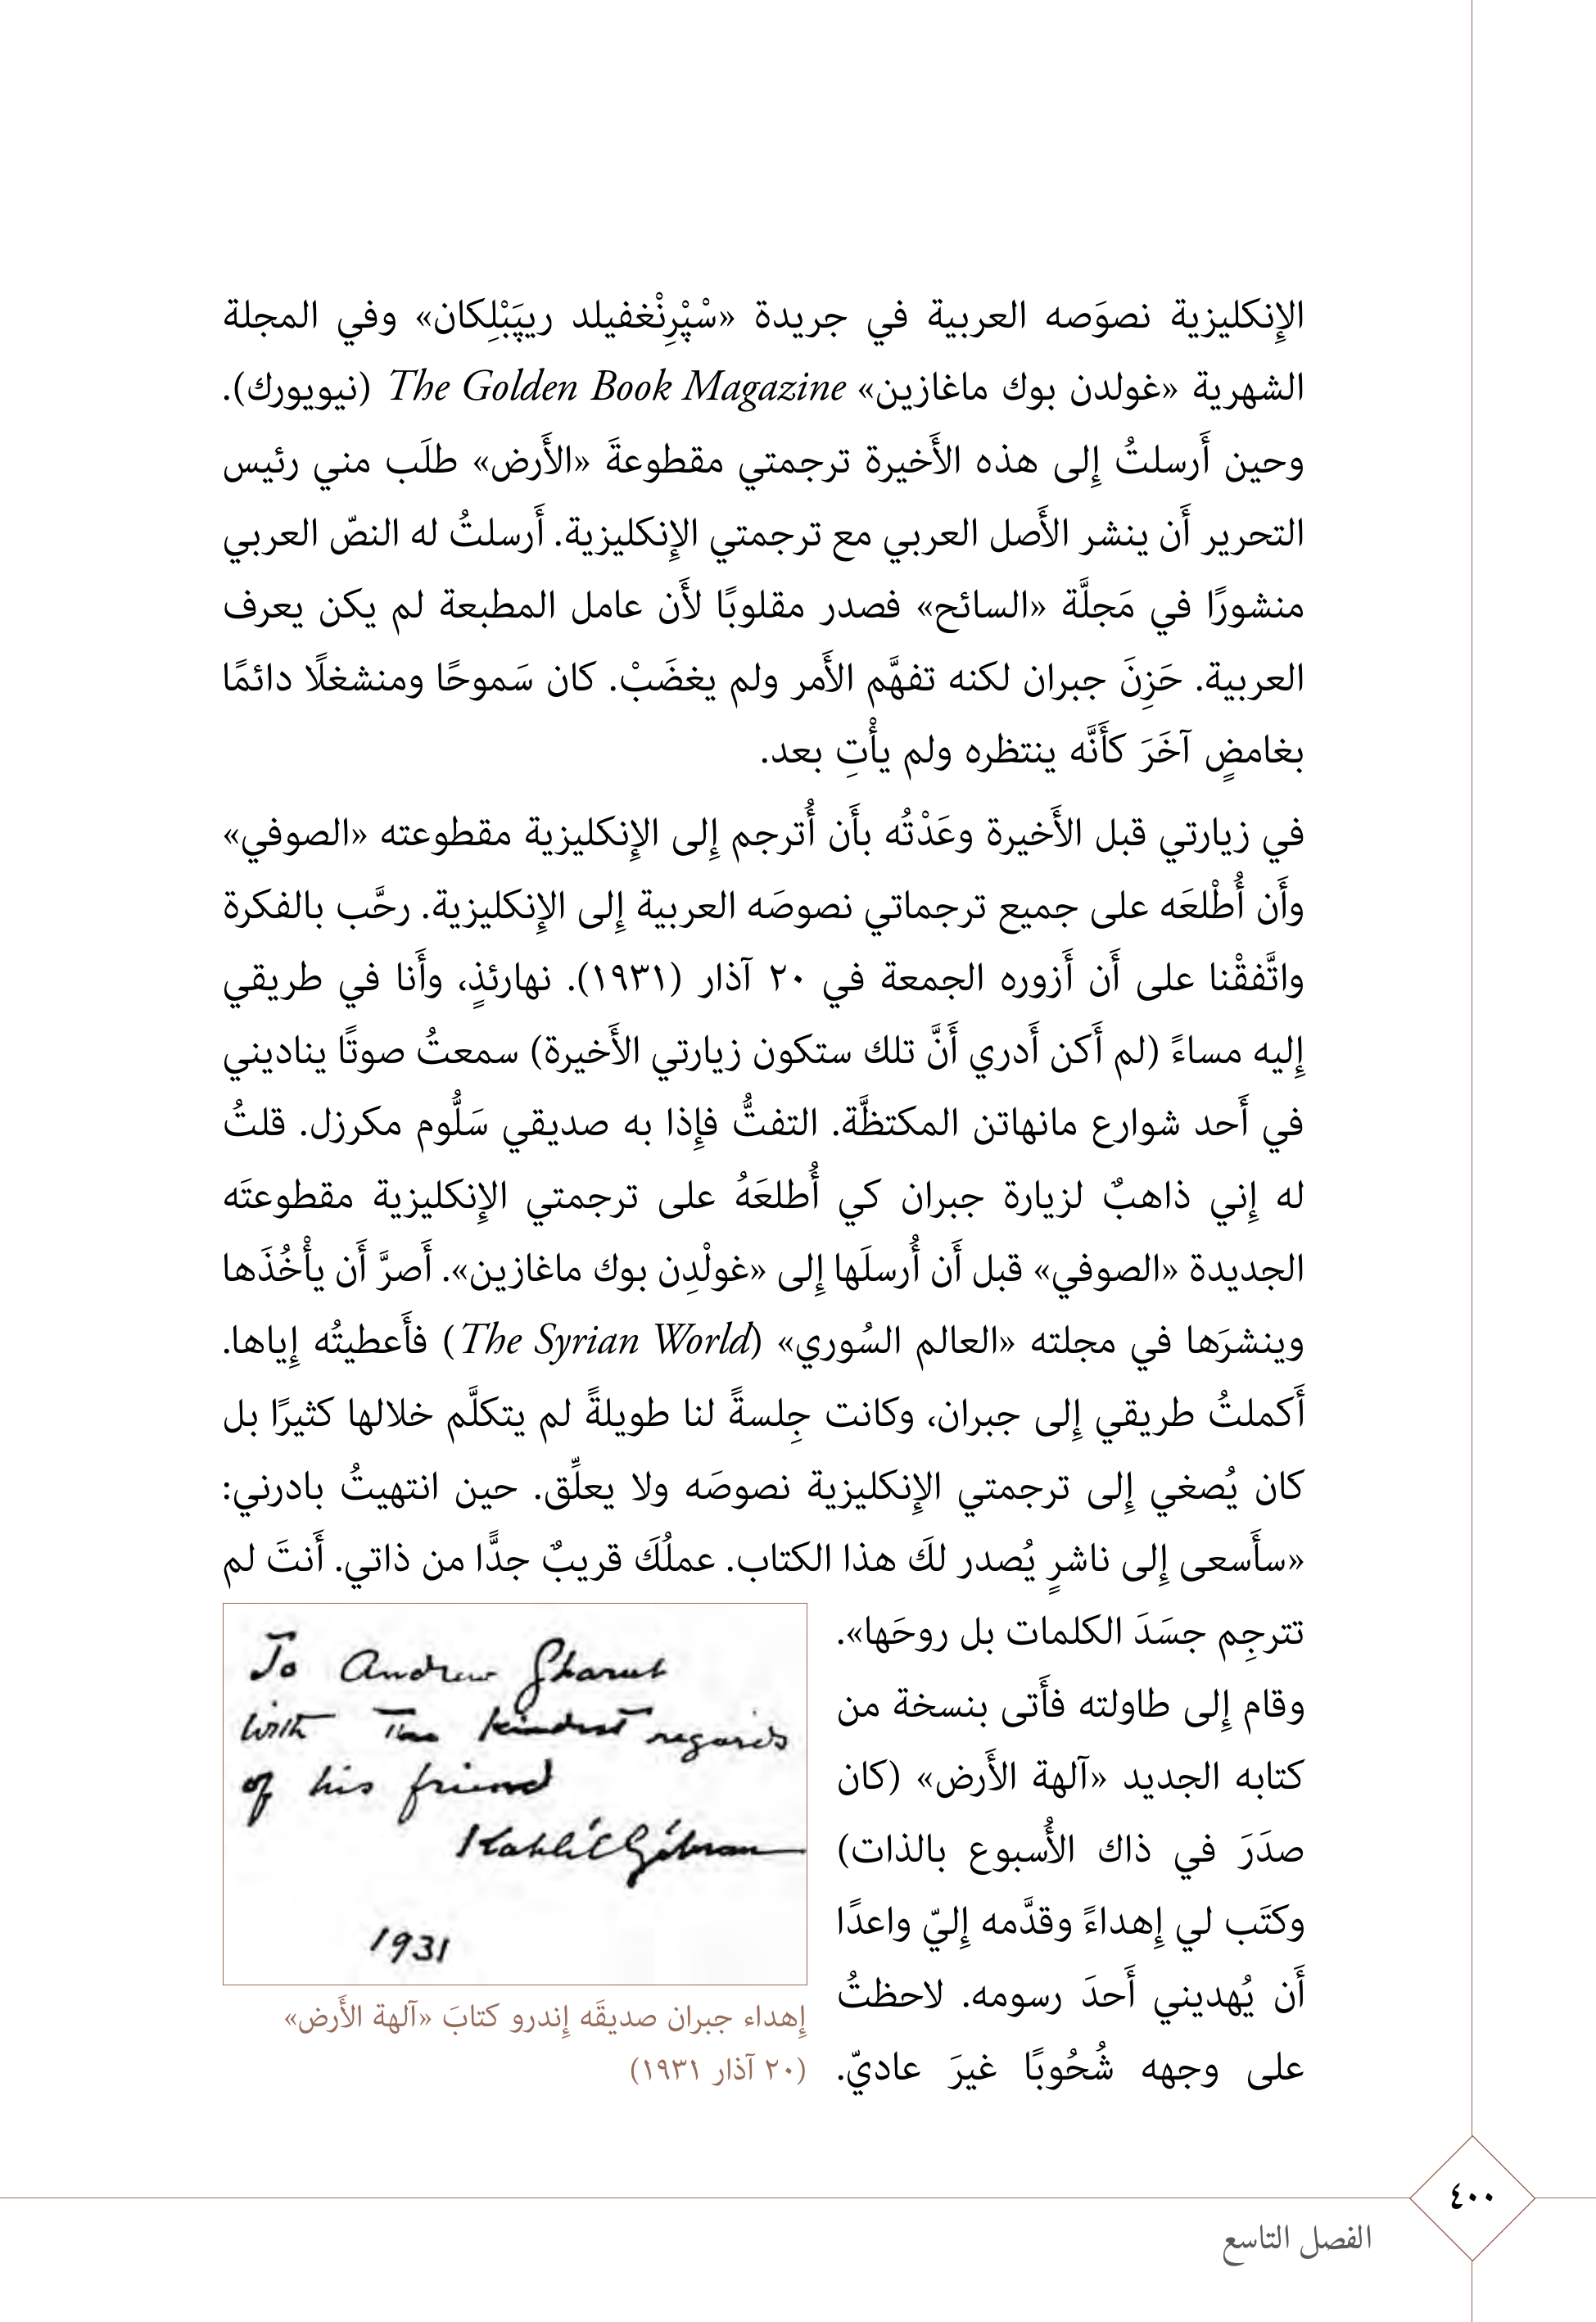 الإِنكليزية نصوَصه العربية في جريدة «سْپْرِنْغفيلد ريپَبْلِكان» وفي المجلة
الشهرية «غولدن بوك ماغازين» The Golden Book Magazine (نيويورك).
وحين أَرسلتُ إِلى هذه الأَخيرة ترجمتي مقطوعةَ «الأَرض» طلَب مني رئيس
التحرير أَن ينشر الأَصل العربي مع ترجمتي الإِنكليزية. أَرسلتُ له النصّ العربي
منشورًا في مَجلَّة «السائح» فصدر مقلوبًا لأَن عامل المطبعة لم يكن يعرف
العربية. حَزِنَ جبران لكنه تفهَّم الأَمر ولم يغضَبْ. كان سَموحًا ومنشغلًا دائمًا
بغامضٍ آخَرَ كأَنَّه ينتظره ولم يأْتِ بعد.
في زيارتي قبل الأَخيرة وعَدْتُه بأَن أُترجم إِلى الإِنكليزية مقطوعته «الصوفي»
وأَن أُطْلعَه على جميع ترجماتي نصوصَه العربية إِلى الإِنكليزية. رحَّب بالفكرة
واتَّفقْنا على أَن أَزوره الجمعة في ٢٠ آذار (١٩٣١). نهارئذٍ، وأَنا في طريقي
إِليه مساءً (لم أَكن أَدري أَنَّ تلك ستكون زيارتي الأَخيرة) سمعتُ صوتًا يناديني
في أَحد شوارع مانهاتن المكتظَّة. التفتُّ فإِذا به صديقي سَلُّوم مكرزل. قلتُ
له إِني ذاهبٌ لزيارة جبران كي أُطلعَهُ على ترجمتي الإِنكليزية مقطوعتَه
الجديدة «الصوفي» قبل أَن أُرسلَها إِلى «غولْدِن بوك ماغازين». أَصرَّ أَن يأْخُذَها
وينشرَها في مجلته «العالم السُوري» (The Syrian World) فأَعطيتُه إِياها.
أَكملتُ طريقي إِلى جبران، وكانت جِلسةً لنا طويلةً لم يتكلَّم خلالها كثيرًا بل
كان يُصغي إِلى ترجمتي الإِنكليزية نصوصَه ولا يعلِّق. حين انتهيتُ بادرني:
«سأَسعى إِلى ناشرٍ يُصدر لكَ هذا الكتاب. عملُكَ قريبٌ جدًّا من ذاتي. أَنتَ لم
تترجِم جسَدَ الكلمات بل روحَها».
وقام إِلى طاولته فأَتى بنسخة من
كتابه الجديد «آلهة الأَرض» (كان
صدَرَ في ذاك الأُسبوع بالذات)
وكتَب لي إِهداءً وقدَّمه إِليّ واعدًا
أَن يُهديني أَحدَ رسومه. لاحظتُ
على وجهه شُحُوبًا غيرَ عاديّ.
To Andrew Ghareeb
with The kindest regards
of his friend
Kahlil Gibran
1931
إِهداء جبران صديقَه إِندرو كتابَ «آلهة الأَرض»
(٢٠ آذار ١٩٣١)
٤٠٠
الفصل التاسع